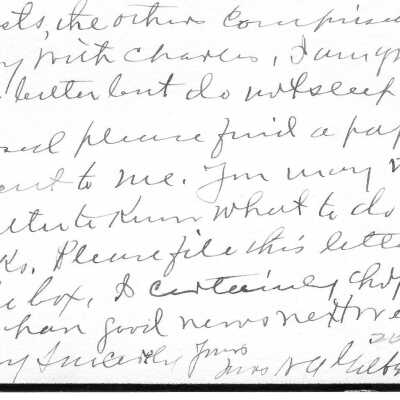 sts, the others comprised
y with Charles, I am
better but do not sleep
sed please find a pap
ent to me. You may
etter to know what to do
ks. Please file this lette
e box, I certainly hop
han good news next we
y Sincerely Yours
Mrs N A Gilb